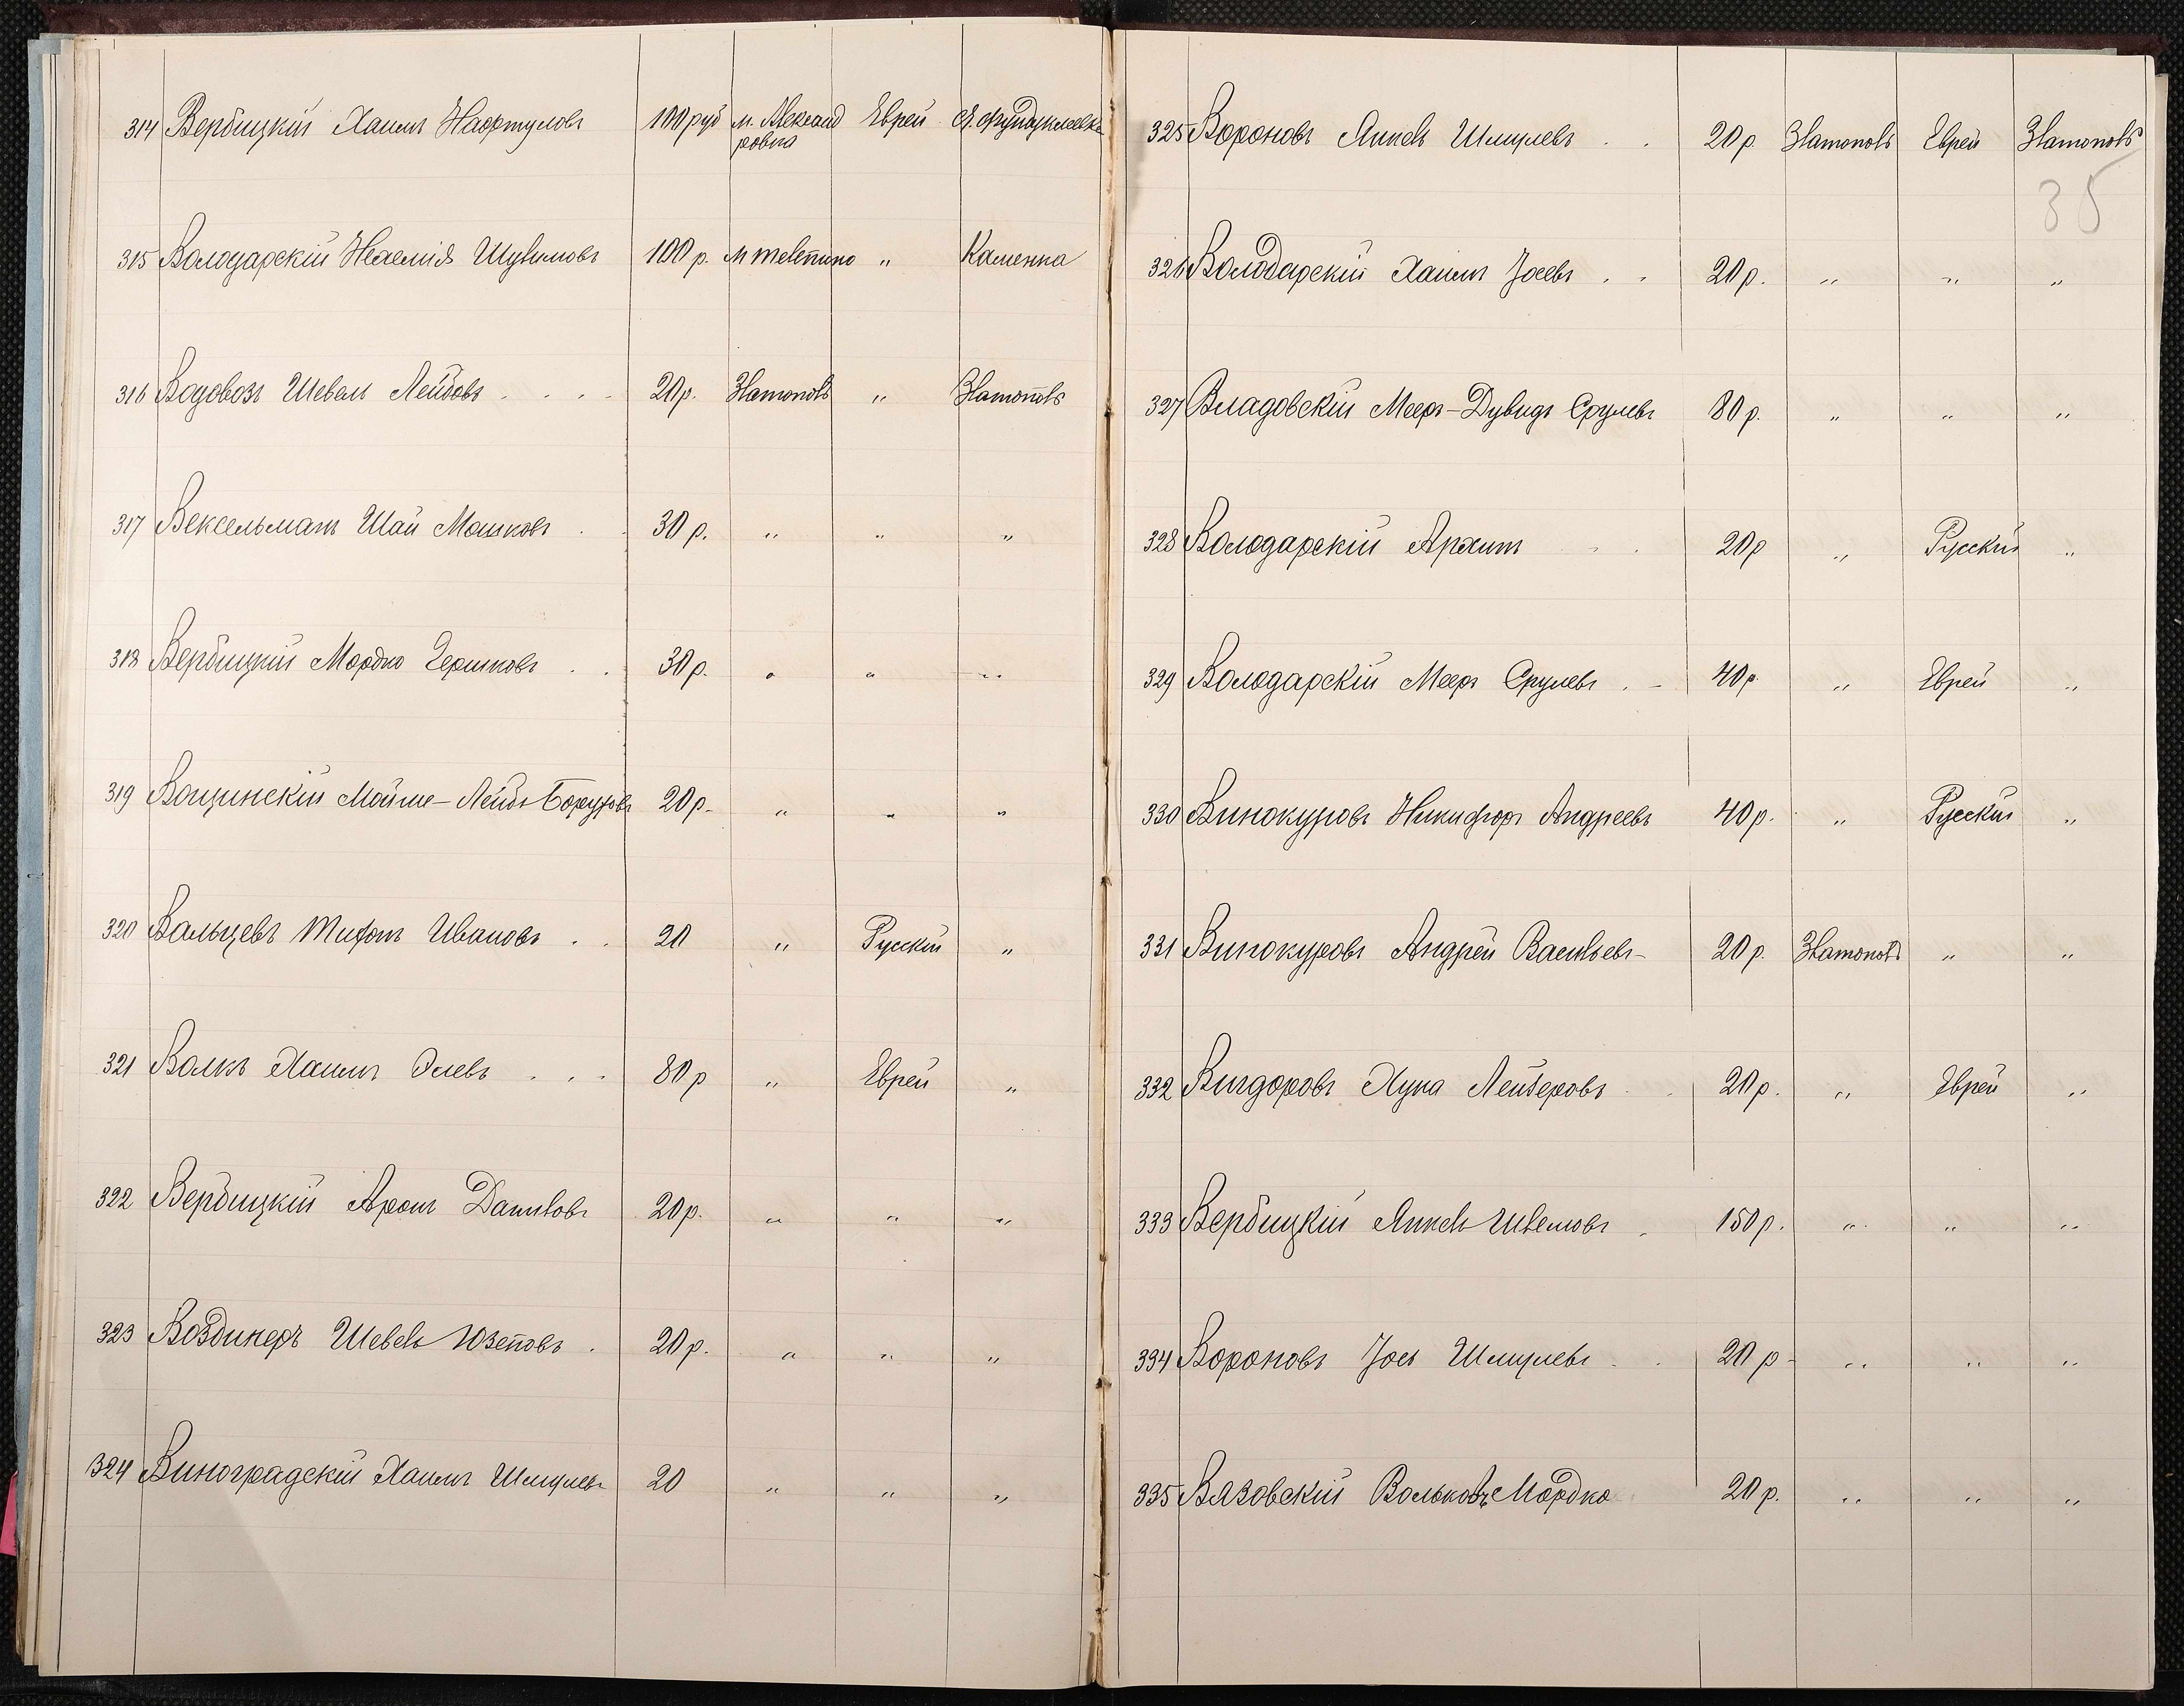 314 Вербицкій Хаимъ Нафтуловъ 100 руб м. Александ Еврей С. Фундуклеевка
ровка
315 Володарскій Неемія Шувимовъ 100 р. м Телепино " Каменка
316 Водовозъ Шевель Лейбовъ . . . . 20 р. Златополь " Златополь
317 Вексельманъ Шай Мошковъ . . 30 р. " " "
318 Вербицкій Мордко Гершковъ . . 30 р. " " "
319 Вощинскій Мойше-Лейбъ Боруховъ 20 р. " " "
320 Вальцевъ Тифонъ Ивановъ . . 20 " Русскій "
321 Волкъ Хаимъ Элевъ . . . 80 р " Еврей "
322 Вербицкій Аронъ Даниловъ 20 р. " " "
323 Воздинеръ Шевель Юзеповъ . 20 р. " " "
324 Виноградскій Хаимъ Шмулевъ 20 " " "
325 Вороновъ Янкель Шмулевъ . . 20 р. Златополь Еврей Златополь
35
326 Володарскій Хаимъ Іосевъ . . 20 р. " " "
327 Владовскій Мееръ-Дувидъ Срулевъ 80 р. " " "
328 Володарскій Архипъ . . 20 р " Русскій "
329 Володарскій Мееръ Срулевъ . - 40 р. " Еврей "
330 Винокуровъ Никифоръ Андреевъ 40 р. " Русскій "
331 Винокуровъ Андрей Васильевъ - 20 р. Златополь " "
332 Вигдоровъ Хуна Лейзеровъ . . 20 р. " Еврей "
333 Вербицкій Янкель Ивемовъ . 150 р. " " "
334 Вороновъ Іось Шмулевъ . . 20 р - " " "
335 Вязовскій Вольковъ Мордко 20 р. " " "